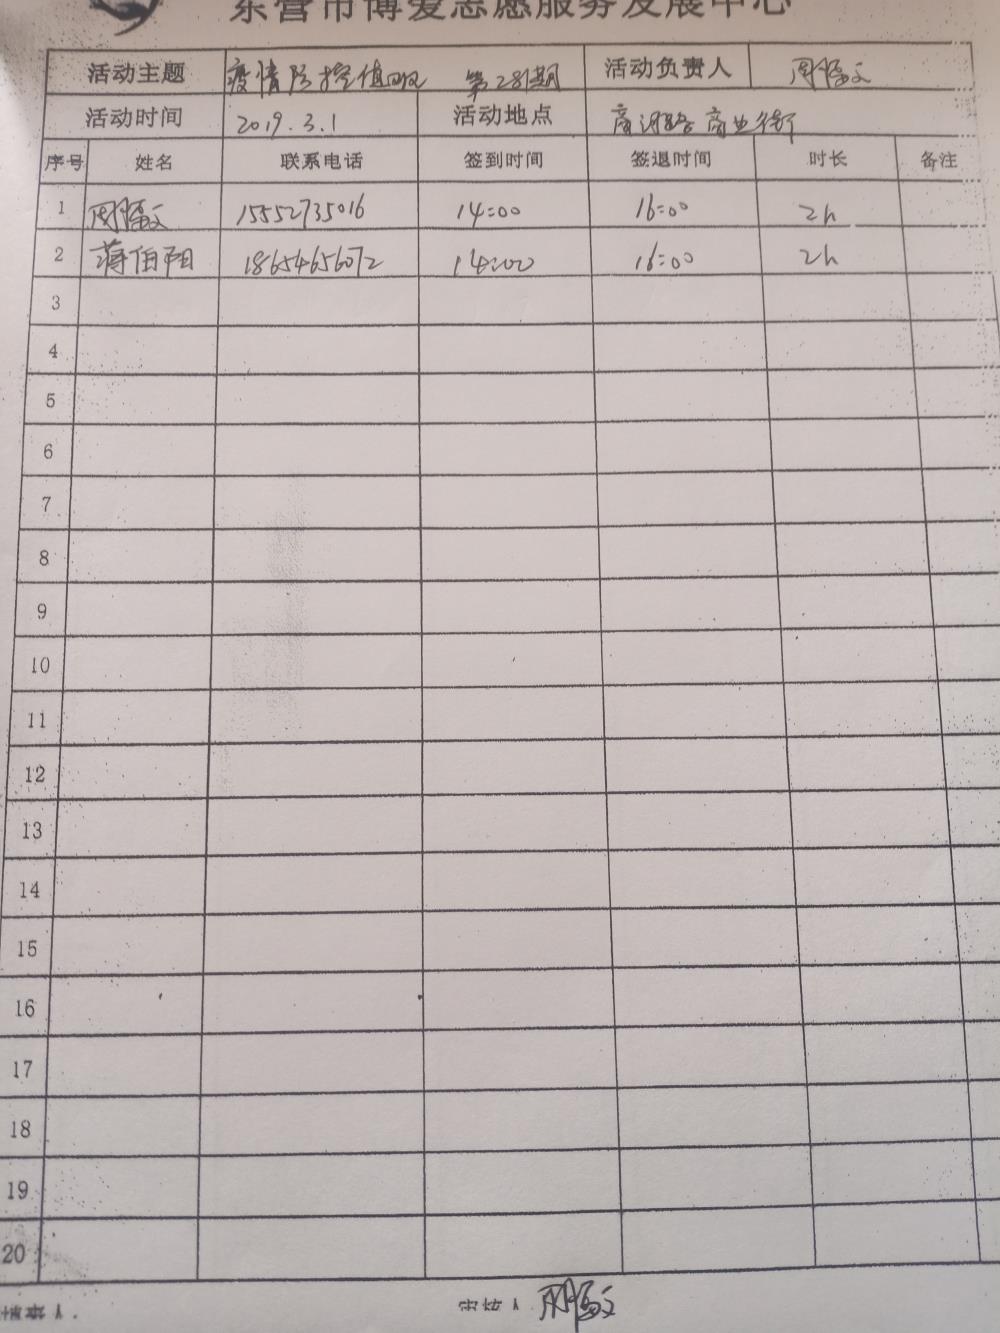 东营市博爱志愿服务发展中心
活动主题 疫情防控值 第281期 活动负责人
活动时间 2019.3.1 活动地点 商业街
序号 姓名 联系电话 签到时间 签退时间 时长 备注
1 15552735016 14:00 16:00 2h
2 蒋伯阳 18654656072 14:00 16:00 2h
3
4
5
6
7
8
9
10
11
12
13
14
15
16
17
18
19
20
审核人